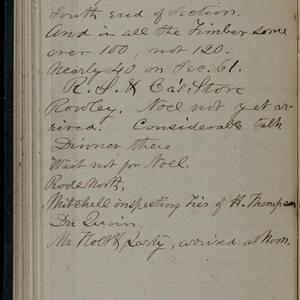 South end of Section.
And in all the Timber some
over 100, not 120.
Nearly 40 on Sec. 61.
R. S. & Cas' Store
Rowley. Noel not yet ar-
rived. Considerable talk
Dinner there
Wait not for Noel.
Rode North,
Mitchell inspecting Ties of H. Thompson
Du Quoin.
Mr Holt & party, arrived at Noon.